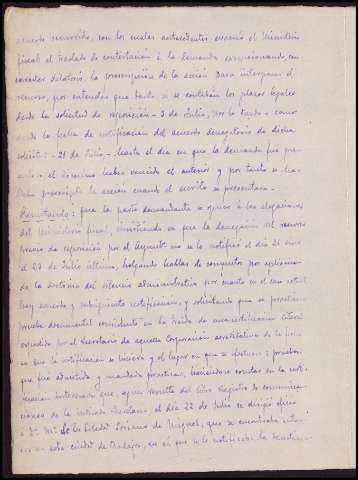 acuerdo recurrido, con los cuales antecedentes evacuó el Ministerio
fiscal el traslado de contestación á la demanda excepcionando, con
carácter dilatorio, la prescripción de la acción para interponer el
recurso, por entender que tanto si se contaban los plazos legales
desde la solicitud de reposición - 3 de Julio, por lo tanto - como
desde la fecha de notificación del acuerdo denegatorio de dicha
solicitud - 21 de Julio - hasta el día en que la demanda fue pre-
el término había vencido el anterior y por tanto se ha-
prescripta la acción cuando el escrito se presentaba.
Resultando: que la parte demandante se opuso á las alegaciones
del Ministerio fiscal, insistiendo en que la denegación del recurso
previo de reposición por el Ayunto no se le notificó el día 21 sino
el 23 de Julio último, holgando hablar de cómputo por aplicación
de la doctrina del silencio administrativo por cuanto en el caso actual
hay acuerdo y subsiguiente notificación, y solicitando que se practicara
prueba documental consistente en la traida de una certificación literal
expedida por el Secretario de aquella Corporación acreditativa de la fecha
en que la notificación se hiciera y el lugar en que se efectuara; prueba
que fué admitida y mandada practicar, haciéndose constar en la certi-
ficación interesada que, según resulta del libro registro de comunica-
ciones de la entidad, el día 22 de Julio se dirigió oficio
á Dª Mª de la Soriano de Miguel, que se encontraba
en esta ciudad de Badajoz, en el que se le notificaba la